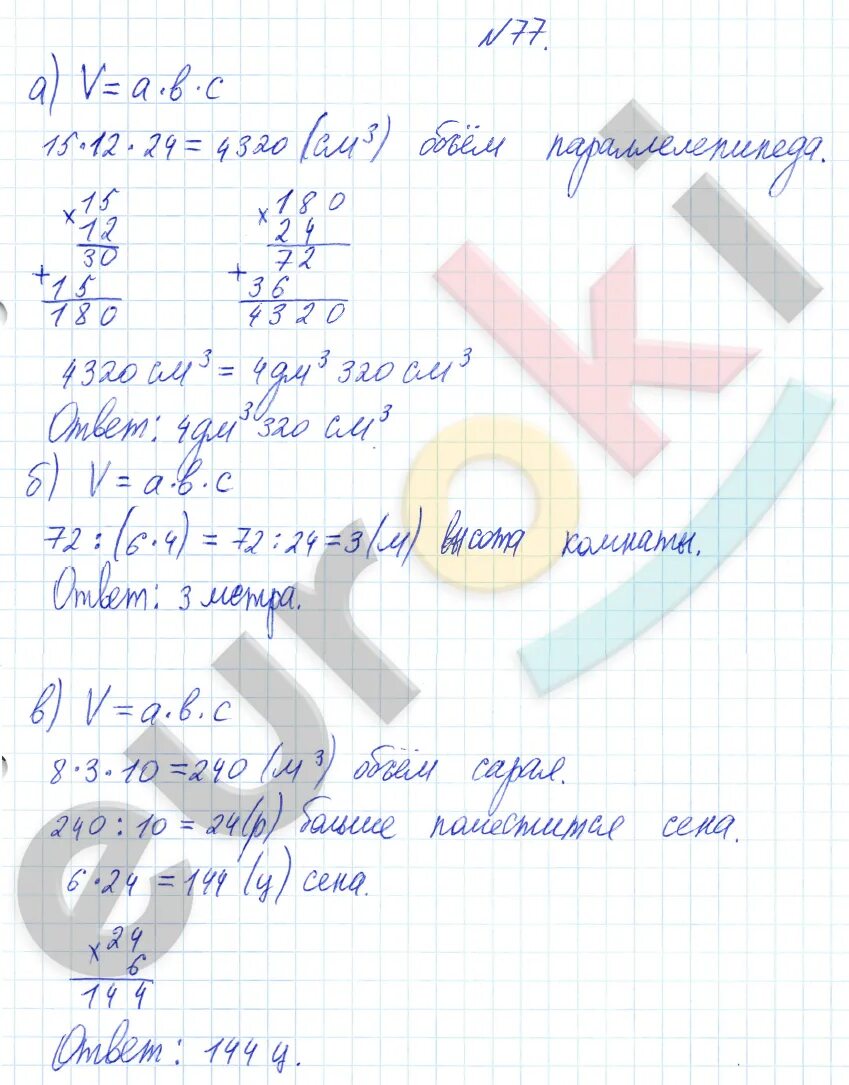 №77.
а) V = а·в·с
15·12·24 = 4320 (см³) объём параллелепипеда.
×15 ×180
12 24
30 72
+15 +36
180 4320
4320 см³ = 4дм³ 320 см³
Ответ: 4дм³ 320 см³
б) V = а·в·с
72 : (6·4) = 72 : 24 = 3 (м) высота комнаты.
Ответ: 3 метра.
в) V = а·в·с
8·3·10 = 240 (м³) объём сарая.
240 : 10 = 24 (р) больше поместится сена.
6·24 = 144 (ц) сена.
×24
6
144
Ответ: 144 ц.
euroki